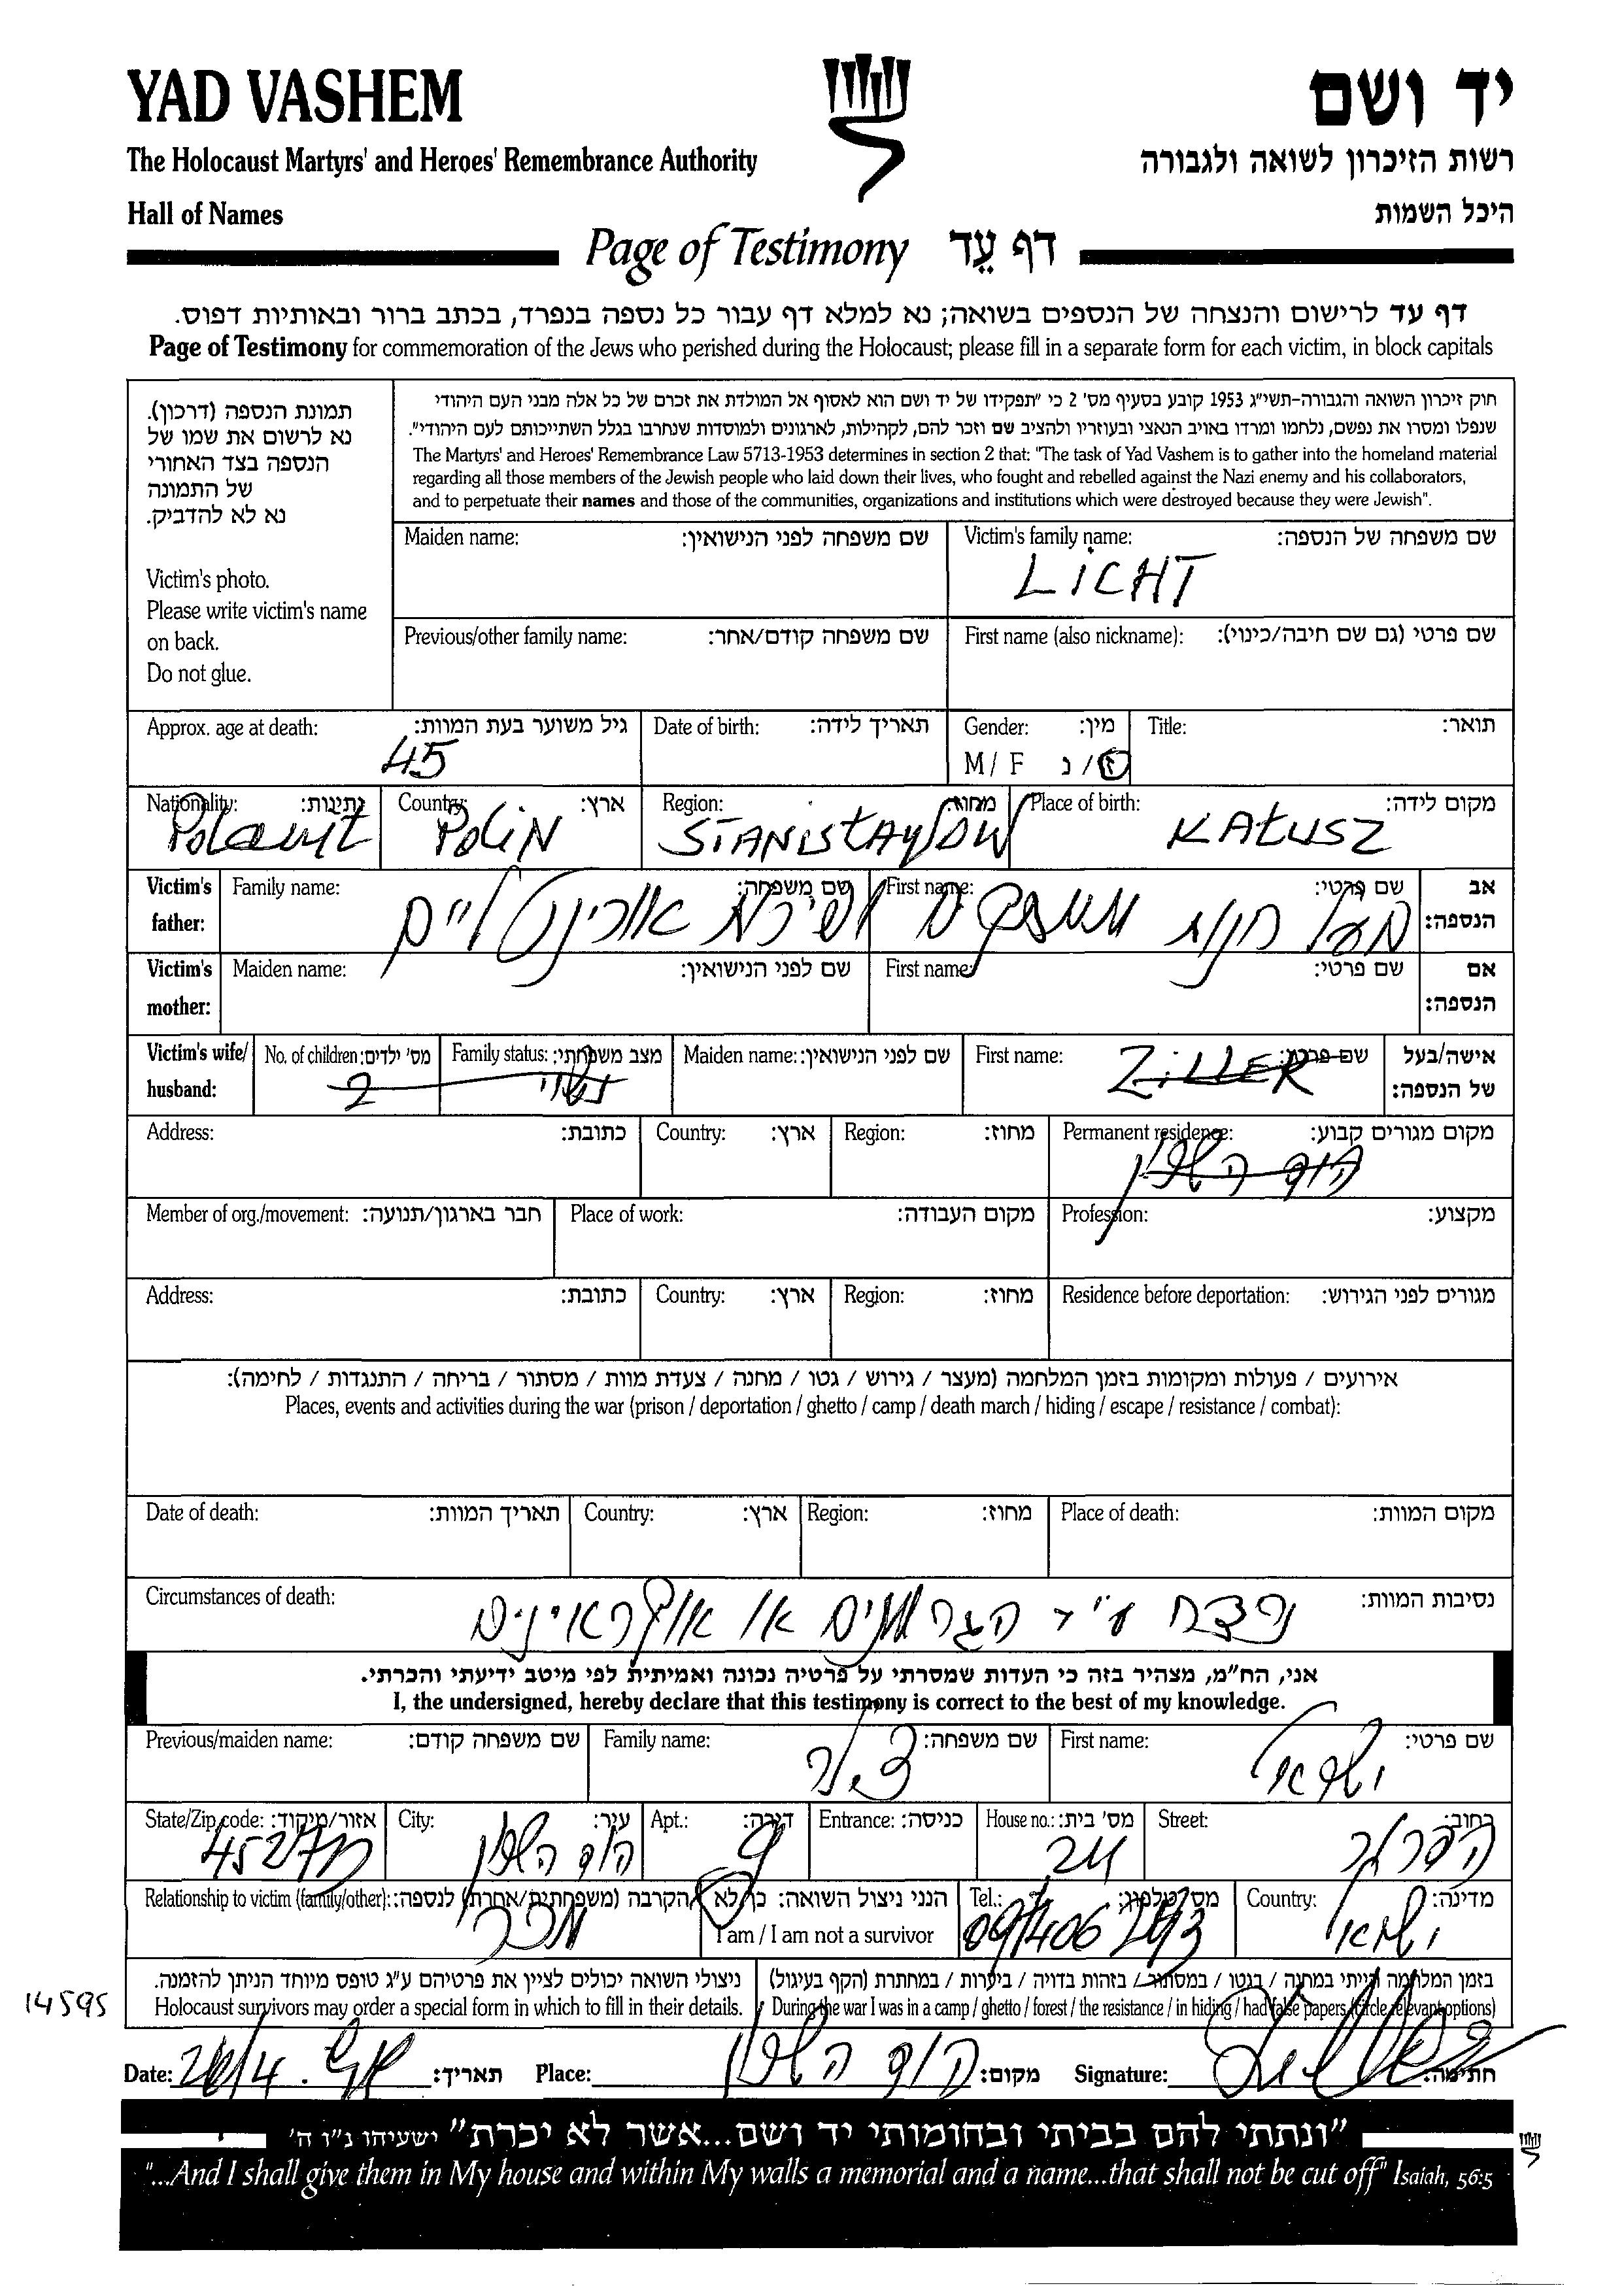 YAD VASHEM
יד ושם
The Holocaust Martyrs' and Heroes' Remembrance Authority
רשות הזיכרון לשואה ולגבורה
Hall of Names
היכל השמות
Page of Testimony דף עֵד
דף עד לרישום והנצחה של הנספים בשואה; נא למלא דף עבור כל נספה בנפרד, בכתב ברור ובאותיות דפוס.
Page of Testimony for commemoration of the Jews who perished during the Holocaust; please fill in a separate form for each victim, in block capitals
תמונת הנספה (דרכון).
נא לרשום את שמו של
הנספה בצד האחורי
של התמונה
נא לא להדביק.
Victim's photo.
Please write victim's name
on back.
Do not glue.
חוק זיכרון השואה והגבורה-תשי"ג 1953 קובע בסעיף מס' 2 כי "תפקידו של יד ושם הוא לאסוף אל המולדת את זכרם של כל אלה מבני העם היהודי
שנפלו ומסרו את נפשם, נלחמו ומרדו באויב הנאצי ובעוזריו ולהציב שם וזכר להם, לקהילות, לארגונים ולמוסדות שנחרבו בגלל השתייכותם לעם היהודי".
The Martyrs' and Heroes' Remembrance Law 5713-1953 determines in section 2 that: "The task of Yad Vashem is to gather into the homeland material
regarding all those members of the Jewish people who laid down their lives, who fought and rebelled against the Nazi enemy and his collaborators,
and to perpetuate their names and those of the communities, organizations and institutions which were destroyed because they were Jewish".
Maiden name: שם משפחה לפני הנישואין:
Victim's family name: שם משפחה של הנספה:
LICHT
Previous/other family name: שם משפחה קודם/אחר:
First name (also nickname): שם פרטי (גם שם חיבה/כינוי):
Approx. age at death: גיל משוער בעת המוות:
45
Date of birth: תאריך לידה:
Gender: מין:
M / F ז / נ
Title: תואר:
Nationality: נתינות:
Country: ארץ:
POLIN
Region: מחוז:
STANISŁAWOW
Place of birth: מקום לידה:
KAŁUSZ
Victim's father:
Family name: שם משפחה:
First name: שם פרטי:
אב הנספה:
חנות משקאות
Victim's mother:
Maiden name: שם לפני הנישואין:
First name: שם פרטי:
אם הנספה:
Victim's wife/ husband:
No. of children: מס' ילדים:
2
Family status: מצב משפחתי:
נשוי
Maiden name: שם לפני הנישואין:
First name: שם פרטי:
ZILLER
אישה/בעל של הנספה:
Address: כתובת:
Country: ארץ:
Region: מחוז:
Permanent residence: מקום מגורים קבוע:
הוד השרון
Member of org./movement: חבר בארגון/תנועה:
Place of work: מקום העבודה:
Profession: מקצוע:
Address: כתובת:
Country: ארץ:
Region: מחוז:
Residence before deportation: מגורים לפני הגירוש:
אירועים / פעולות ומקומות בזמן המלחמה (מעצר / גירוש / גטו / מחנה / צעדת מוות / מסתור / בריחה / התנגדות / לחימה):
Places, events and activities during the war (prison / deportation / ghetto / camp / death march / hiding / escape / resistance / combat):
Date of death: תאריך המוות:
Country: ארץ:
Region: מחוז:
Place of death: מקום המוות:
Circumstances of death: נסיבות המוות:
נרצח ע"י הגרמנים או אוקראינים
אני, הח"מ, מצהיר בזה כי העדות שמסרתי על פרטיה נכונה ואמיתית לפי מיטב ידיעתי והכרתי.
I, the undersigned, hereby declare that this testimony is correct to the best of my knowledge.
Previous/maiden name: שם משפחה קודם:
Family name: שם משפחה:
צילר
First name: שם פרטי:
ישראל
State/Zip code: אזור/מיקוד:
City: עיר:
הוד השרון
Apt.: דירה:
9
Entrance: כניסה:
House no.: מס' בית:
24
Street: רחוב:
Relationship to victim (family/other): הקרבה (משפחתית/אחרת) לנספה:
מכר
הנני ניצול השואה: כן/לא
I am / I am not a survivor
Tel.: מס' טלפון:
Country: מדינה:
ישראל
ניצולי השואה יכולים לציין את פרטיהם ע"ג טופס מיוחד הניתן להזמנה.
Holocaust survivors may order a special form in which to fill in their details.
בזמן המלחמה הייתי במחנה / בגטו / במסתור / בזהות בדויה / ביערות / במחתרת (הקף בעיגול)
During the war I was in a camp / ghetto / forest / the resistance / in hiding / had false papers (circle relevant options)
14595
Date: תאריך:
Place: מקום:
הוד השרון
Signature: חתימה:
"ונתתי להם בביתי ובחומותי יד ושם...אשר לא יכרת" ישעיהו נ"ו ה'
"...And I shall give them in My house and within My walls a memorial and a name...that shall not be cut off" Isaiah, 56:5